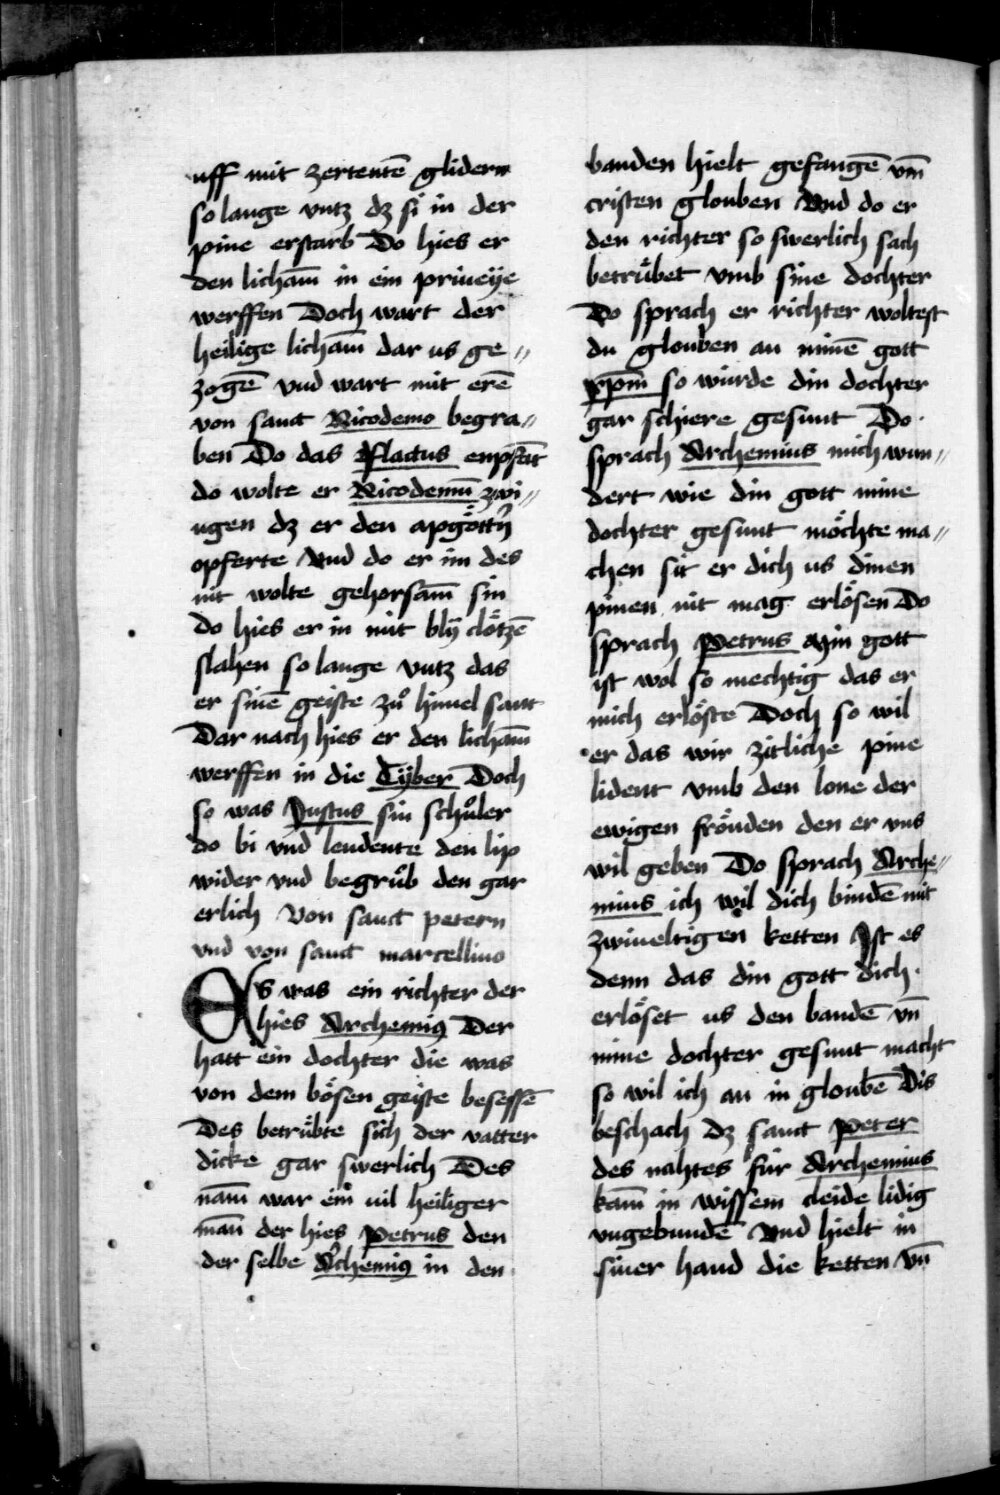 uff mit zertentē glidern
so lange vntz dz si in der
pine erstarb Do hies er
den lichām in ein priueÿe
werffen Doch wart der
heilige lichām dar us ge〃
zogē vnd wart mit erē
von sanct Nicodemo begra〃
ben Do das Flactus enpfāt
do wolte er Nicodemū zwi〃
ngen dz er den apgöttn̄
opferte Vnd do er im des
nit wolte gehorsām sin
do hies er in mit blÿ clötzē
slahen so lange vntz das
er sinē geiste zuͦ himel sant
Dar nach hies er den lichām
werffen in die Tÿber Doch
so was Justus sin schuͦler
do bi vnd lendente den lip
wider vnd begruͦb den gar
erlich Von sanct petern
vnd von sanct marcellino
Es was ein richter der
hies Archemiꝯ Der
hatt ein dochter die was
von dem bösen geiste besessē
Des betrübte sich der vatter
dicke gar swerlich Des
nam̄ war ein vil heiliger
man̄ der hies Petrus den
der selbe Archemiꝯ in den
banden hielt gefangē vm̄
cristen glouben Vnd do er
den richter so swerlich sach
betrübet vmb sine dochter
Do sprach er richter woltest
du glouben an minē gott
xp̄m so würde din dochter
gar schiere gesunt Do
sprach Archemius mich wun〃
dert wie din gott mine
dochter gesunt möchte ma〃
chen sit er dich us dinen
pinen nit mag erlösen Do
sprach Petrus Min gott
ist wol so mechtig das er
mich erlöste Doch so wil
er das wir zitliche pine
lident vmb den lone der
ewigen fröuden den er vns
wil geben Do sprach Arche〃
mius ich wil dich bindē mit
zwiueltigen ketten Ist es
denn das din gott dich
erlöset us den bandē vn̄
mine dochter gesunt macht
so wil ich an in gloubē Dis
beschach dz sanct Peter
des nahtes für Archemius
kam̄ in wissem cleide lidig
vngebundē Vnd hielt in
siner hand die ketten vn̄